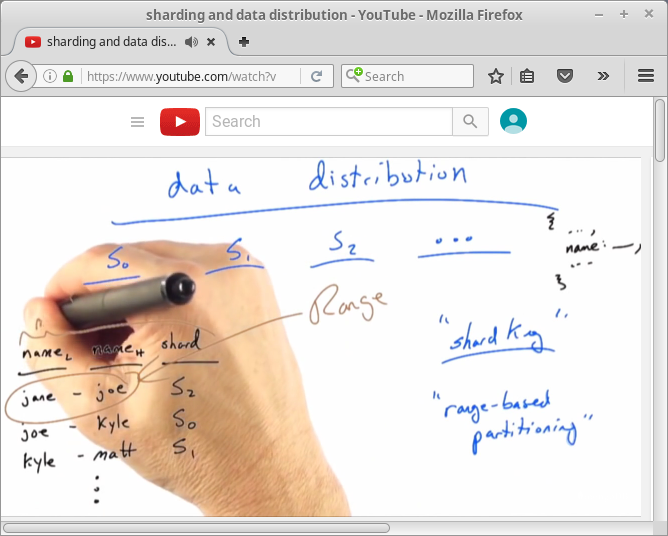 sharding and data distribution - YouTube - Mozilla Firefox
sharding and data dis...
https://www.youtube.com/watch?v
Search
Search
data distribution
S0 S1 S2 ...
{ ...,
name: —,
...
}
Range
"shard key"
nameL nameH shard
jane - joe S2
joe - Kyle S0
Kyle - matt S1
"range-based
partitioning"